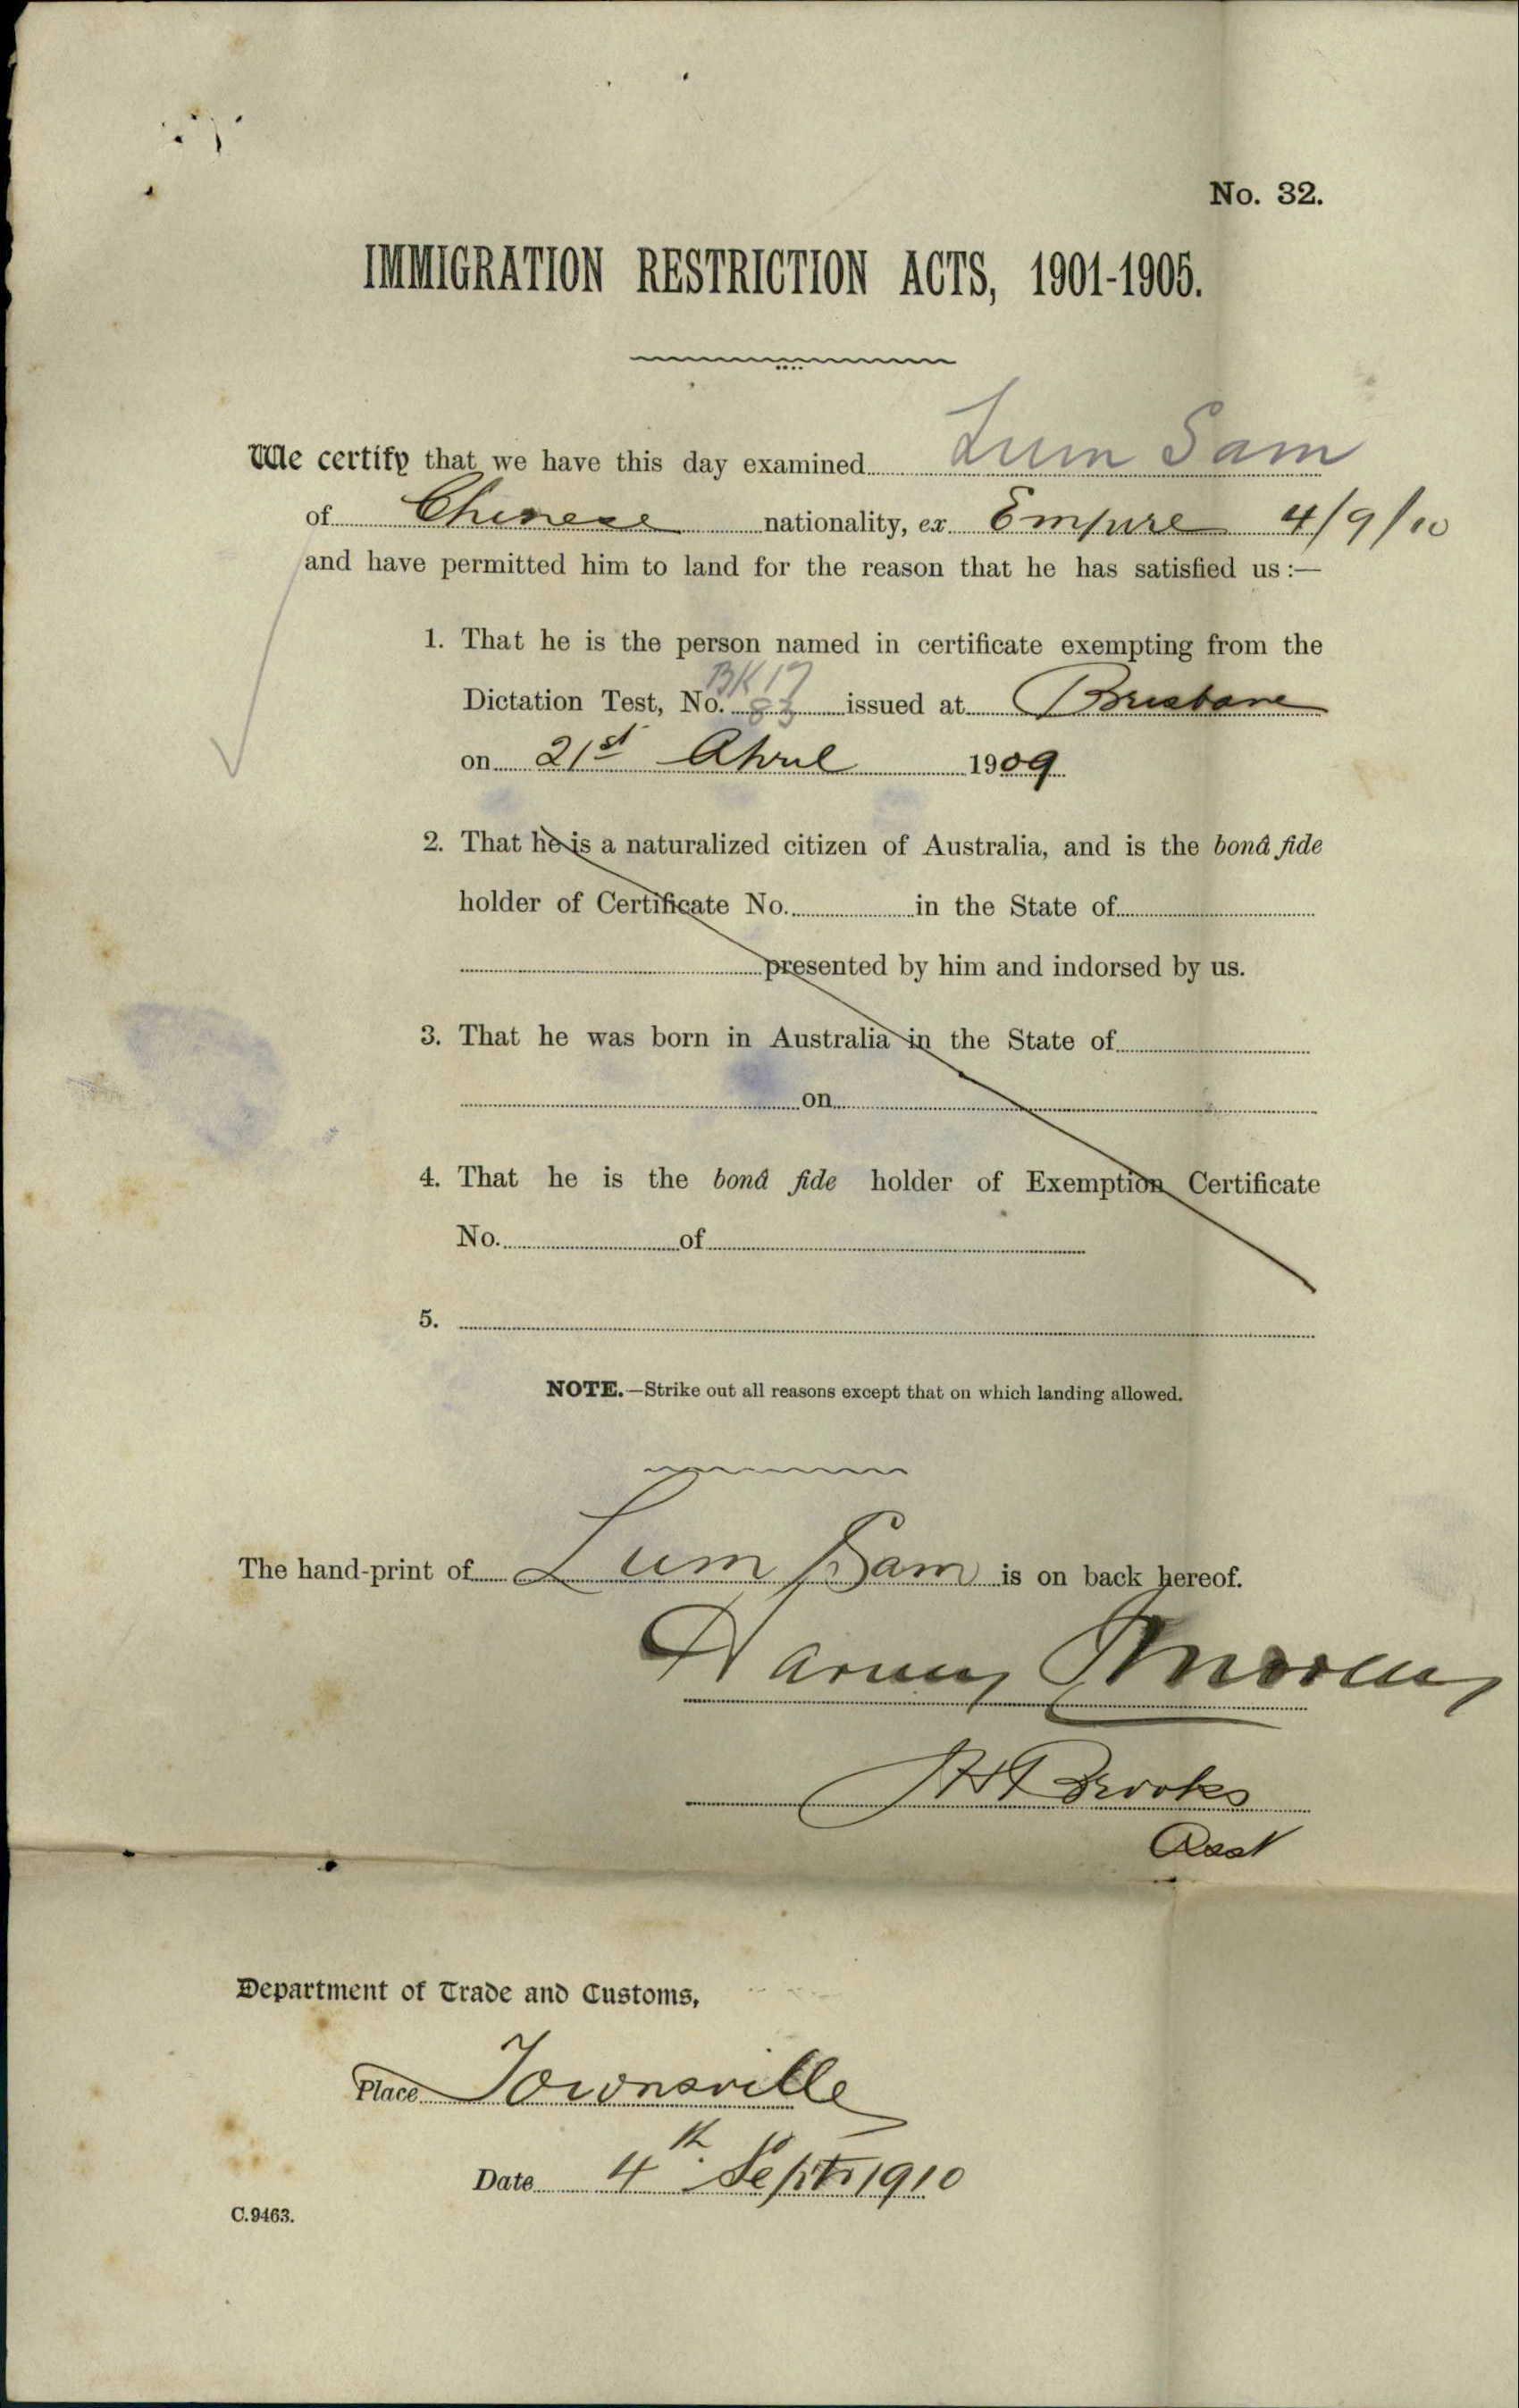 No. 32.
IMMIGRATION RESTRICTION ACTS, 1901-1905.
We certify that we have this day examined Lum Sam
of Chinese nationality, ex Empire 4/9/10
and have permitted him to land for the reason that he has satisfied us :—
1. That he is the person named in certificate exempting from the
BK 17
Dictation Test, No. 83 issued at Brisbane
on 21st April 1909
2. That he is a naturalized citizen of Australia, and is the bonâ fide
holder of Certificate No. in the State of
presented by him and indorsed by us.
3. That he was born in Australia in the State of
on
4. That he is the bonâ fide holder of Exemption Certificate
No. of
5.
NOTE.—Strike out all reasons except that on which landing allowed.
The hand-print of Lum Sam is on back hereof.
Brooks
Department of Trade and Customs,
Place Townsville
Date 4th Sept 1910
C.9463.